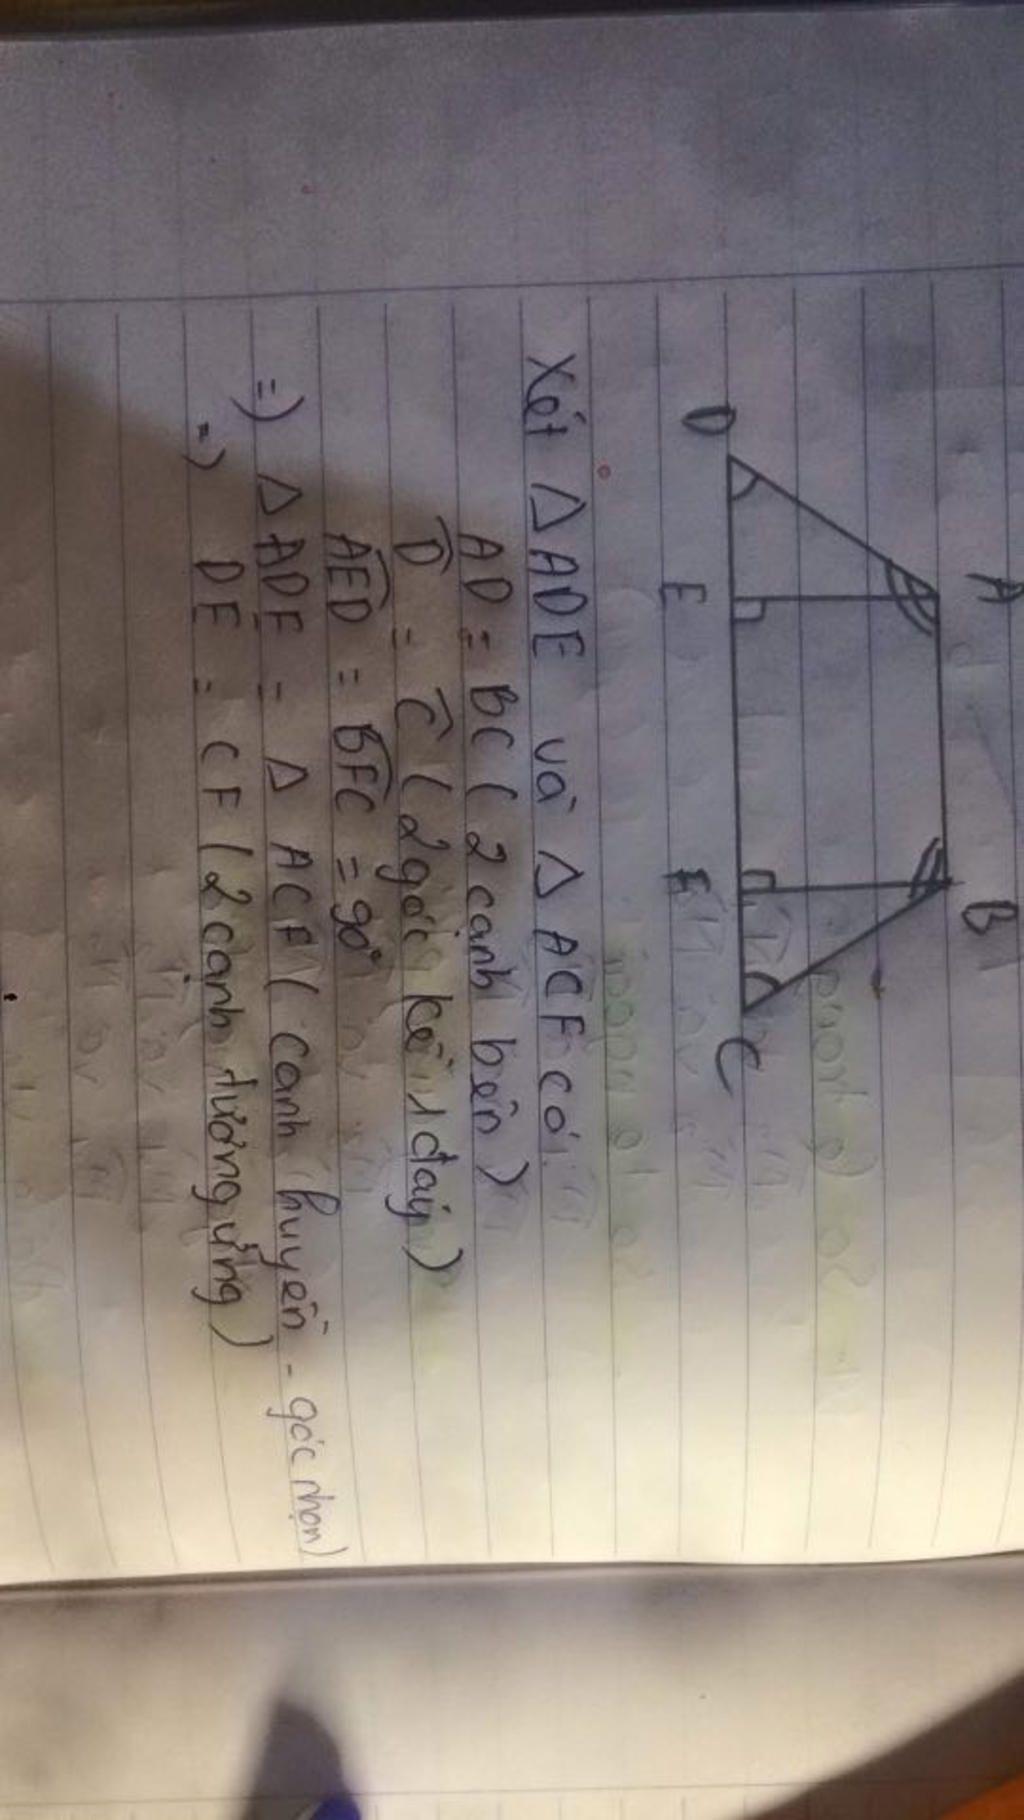 A B
D E F C
Xét Δ ADE và Δ ACF có:
AD = BC (2 cạnh bên)
D̂ = Ĉ (2 góc kề 1 đáy)
AÊD = BF̂C = 90°
=) Δ ADE = Δ ACF (cạnh huyền - góc nhọn)
=) DE = CF (2 cạnh tương ứng)